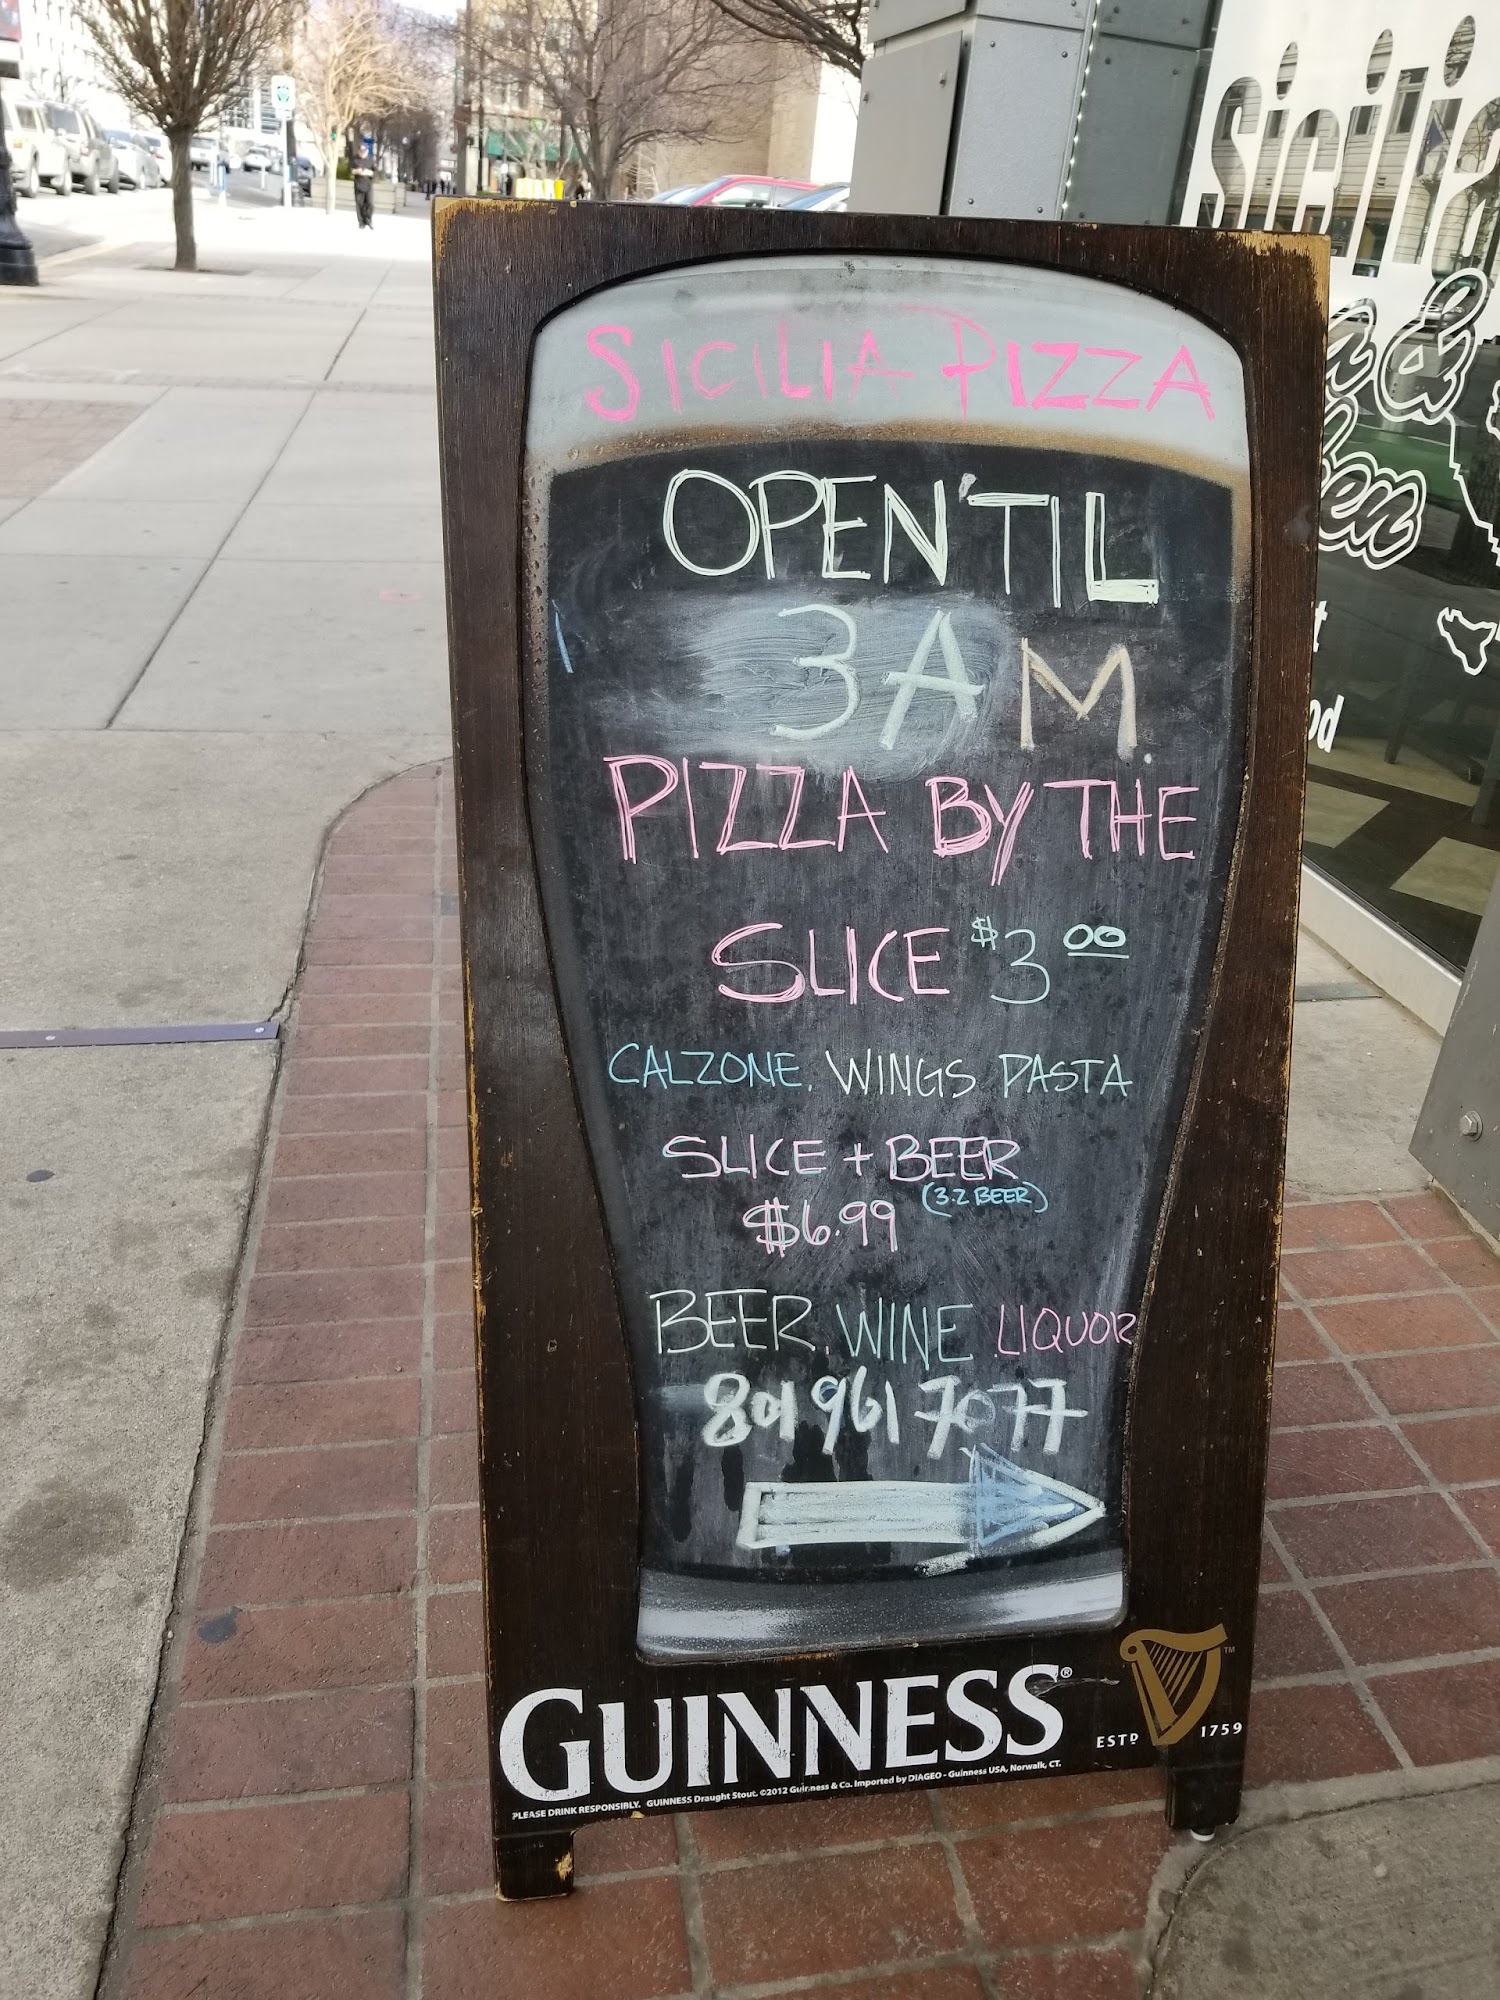 SICILIA PIZZA
OPEN 'TIL
3AM
PIZZA BY THE
SLICE $3 00
CALZONE. WINGS PASTA
SLICE + BEER
(3.2 BEER)
$6.99
BEER. WINE LIQUOR
801 961 7077
GUINNESS®
ESTD 1759
PLEASE DRINK RESPONSIBLY. GUINNESS Draught Stout. ©2012 Guinness & Co. Imported by DIAGEO - Guinness USA, Norwalk, CT.
Sicilia
&